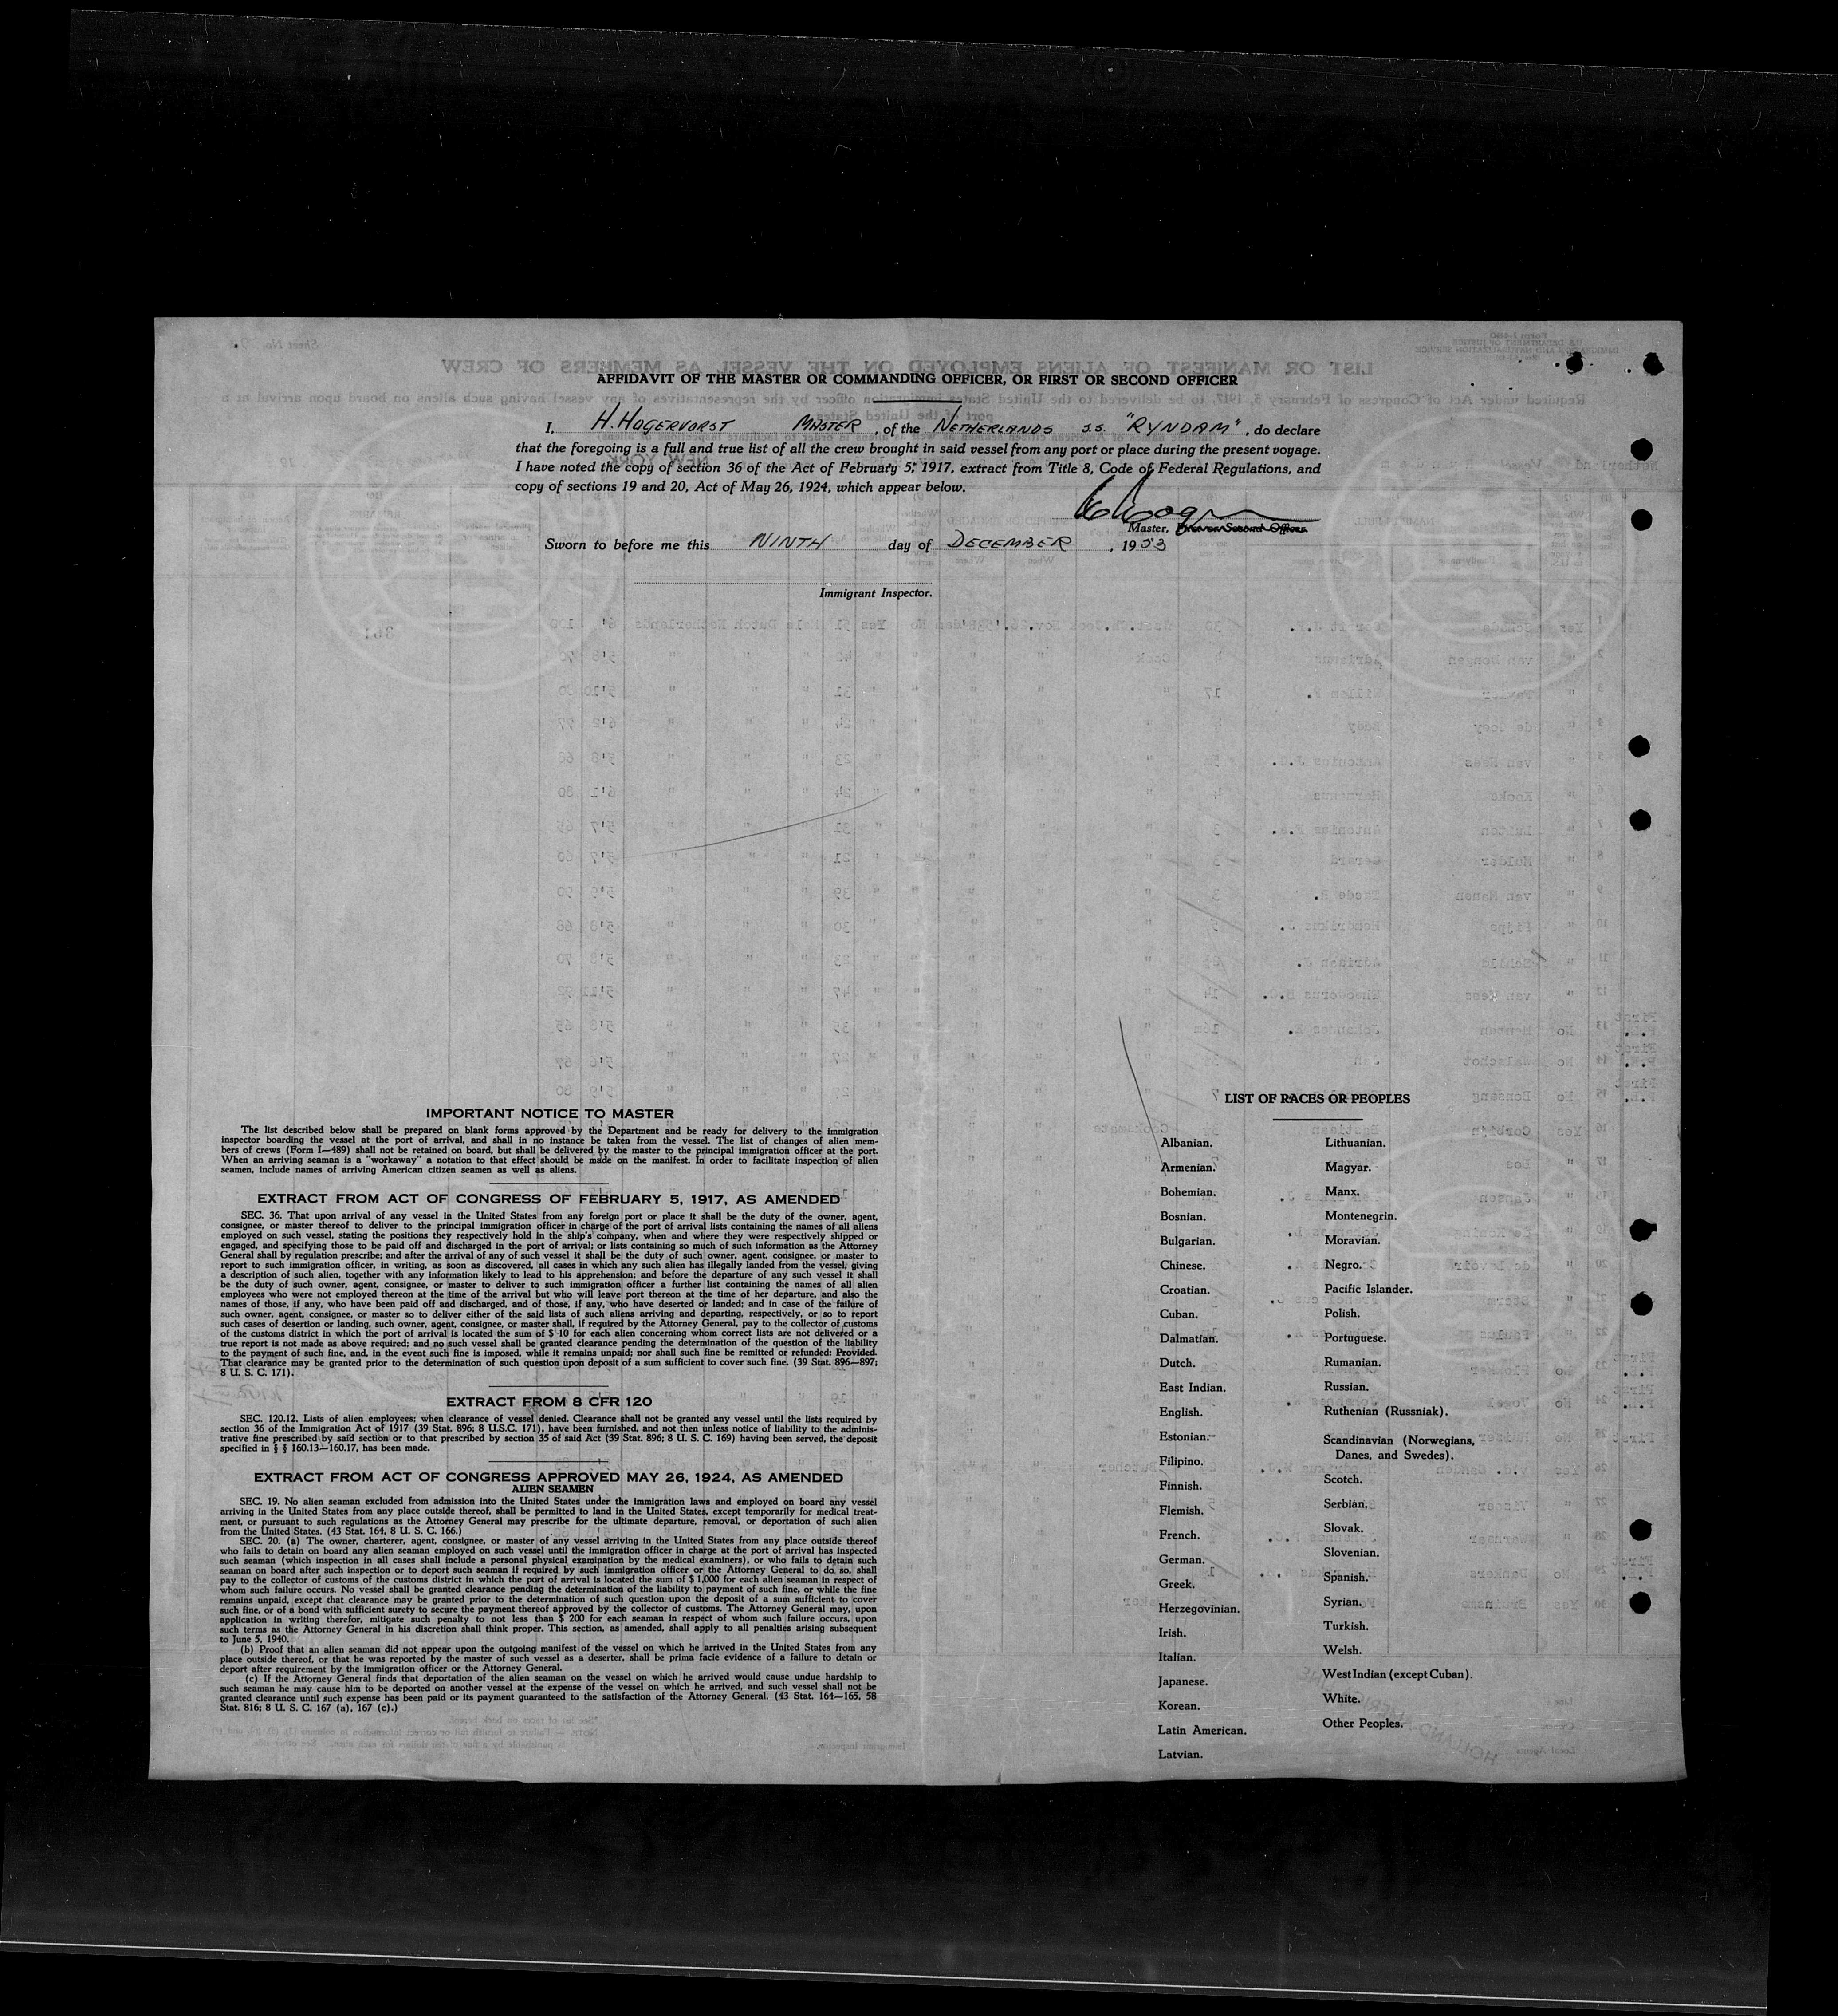 AFFIDAVIT OF THE MASTER OR COMMANDING OFFICER, OR FIRST OR SECOND OFFICER
I, H. HOGERVORST MASTER, of the NETHERLANDS S.S. "RYNDAM", do declare
that the foregoing is a full and true list of all the crew brought in said vessel from any port or place during the present voyage.
I have noted the copy of section 36 of the Act of February 5, 1917, extract from Title 8, Code of Federal Regulations, and
copy of sections 19 and 20, Act of May 26, 1924, which appear below.
Master, First or Second Officer.
Sworn to before me this NINTH day of DECEMBER, 1953
Immigrant Inspector.
IMPORTANT NOTICE TO MASTER
The list described below shall be prepared on blank forms approved by the Department and be ready for delivery to the immigration
inspector boarding the vessel at the port of arrival, and shall in no instance be taken from the vessel. The list of changes of alien mem-
bers of crews (Form I—489) shall not be retained on board, but shall be delivered by the master to the principal immigration officer at the port.
When an arriving seaman is a "workaway" a notation to that effect should be made on the manifest. In order to facilitate inspection of alien
seamen, include names of arriving American citizen seamen as well as aliens.
EXTRACT FROM ACT OF CONGRESS OF FEBRUARY 5, 1917, AS AMENDED
SEC. 36. That upon arrival of any vessel in the United States from any foreign port or place it shall be the duty of the owner, agent,
consignee, or master thereof to deliver to the principal immigration officer in charge of the port of arrival lists containing the names of all aliens
employed on such vessel, stating the positions they respectively hold in the ship's company, when and where they were respectively shipped or
engaged, and specifying those to be paid off and discharged in the port of arrival; or lists containing so much of such information as the Attorney
General shall by regulation prescribe; and after the arrival of any of such vessel it shall be the duty of such owner, agent, consignee, or master to
report to such immigration officer, in writing, as soon as discovered, all cases in which any such alien has illegally landed from the vessel, giving
a description of such alien, together with any information likely to lead to his apprehension; and before the departure of any such vessel it shall
be the duty of such owner, agent, consignee, or master to deliver to such immigration officer a further list containing the names of all alien
employees who were not employed thereon at the time of the arrival but who will leave port thereon at the time of her departure, and also the
names of those, if any, who have been paid off and discharged, and of those, if any, who have deserted or landed; and in case of the failure of
such owner, agent, consignee, or master so to deliver either of the said lists of such aliens arriving and departing, respectively, or so to report
such cases of desertion or landing, such owner, agent, consignee, or master shall, if required by the Attorney General, pay to the collector of customs
of the customs district in which the port of arrival is located the sum of $ 10 for each alien concerning whom correct lists are not delivered or a
true report is not made as above required; and no such vessel shall be granted clearance pending the determination of the question of the liability
to the payment of such fine, and, in the event such fine is imposed, while it remains unpaid; nor shall such fine be remitted or refunded: Provided.
That clearance may be granted prior to the determination of such question upon deposit of a sum sufficient to cover such fine. (39 Stat. 896—897;
8 U. S. C. 171).
EXTRACT FROM 8 CFR 120
SEC. 120.12. Lists of alien employees; when clearance of vessel denied. Clearance shall not be granted any vessel until the lists required by
section 36 of the Immigration Act of 1917 (39 Stat. 896; 8 U.S.C. 171), have been furnished, and not then unless notice of liability to the adminis-
trative fine prescribed by said section or to that prescribed by section 35 of said Act (39 Stat. 896; 8 U. S. C. 169) having been served, the deposit
specified in § § 160.13—160.17, has been made.
EXTRACT FROM ACT OF CONGRESS APPROVED MAY 26, 1924, AS AMENDED
ALIEN SEAMEN
SEC. 19. No alien seaman excluded from admission into the United States under the immigration laws and employed on board any vessel
arriving in the United States from any place outside thereof, shall be permitted to land in the United States, except temporarily for medical treat-
ment, or pursuant to such regulations as the Attorney General may prescribe for the ultimate departure, removal, or deportation of such alien
from the United States. (43 Stat. 164, 8 U. S. C. 166.)
SEC. 20. (a) The owner, charterer, agent, consignee, or master of any vessel arriving in the United States from any place outside thereof
who fails to detain on board any alien seaman employed on such vessel until the immigration officer in charge at the port of arrival has inspected
such seaman (which inspection in all cases shall include a personal physical examination by the medical examiners), or who fails to detain such
seaman on board after such inspection or to deport such seaman if required by such immigration officer or the Attorney General to do so, shall
pay to the collector of customs of the customs district in which the port of arrival is located the sum of $ 1,000 for each alien seaman in respect of
whom such failure occurs. No vessel shall be granted clearance pending the determination of the liability to payment of such fine, or while the fine
remains unpaid, except that clearance may be granted prior to the determination of such question upon the deposit of a sum sufficient to cover
such fine, or of a bond with sufficient surety to secure the payment thereof approved by the collector of customs. The Attorney General may, upon
application in writing therefor, mitigate such penalty to not less than $ 200 for each seaman in respect of whom such failure occurs, upon
such terms as the Attorney General in his discretion shall think proper. This section, as amended, shall apply to all penalties arising subsequent
to June 5, 1940.
(b) Proof that an alien seaman did not appear upon the outgoing manifest of the vessel on which he arrived in the United States from any
place outside thereof, or that he was reported by the master of such vessel as a deserter, shall be prima facie evidence of a failure to detain or
deport after requirement by the immigration officer or the Attorney General.
(c) If the Attorney General finds that deportation of the alien seaman on the vessel on which he arrived would cause undue hardship to
such seaman he may cause him to be deported on another vessel at the expense of the vessel on which he arrived, and such vessel shall not be
granted clearance until such expense has been paid or its payment guaranteed to the satisfaction of the Attorney General. (43 Stat. 164—165, 58
Stat. 816; 8 U. S. C. 167 (a), 167 (c).)
LIST OF RACES OR PEOPLES
Albanian.
Armenian.
Bohemian.
Bosnian.
Bulgarian.
Chinese.
Croatian.
Cuban.
Dalmatian.
Dutch.
East Indian.
English.
Estonian.
Filipino.
Finnish.
Flemish.
French.
German.
Greek.
Herzegovinian.
Irish.
Italian.
Japanese.
Korean.
Latin American.
Latvian.
Lithuanian.
Magyar.
Manx.
Montenegrin.
Moravian.
Negro.
Pacific Islander.
Polish.
Portuguese.
Rumanian.
Russian.
Ruthenian (Russniak).
Scandinavian (Norwegians,
Danes, and Swedes).
Scotch.
Serbian.
Slovak.
Slovenian.
Spanish.
Syrian.
Turkish.
Welsh.
West Indian (except Cuban).
White.
Other Peoples.